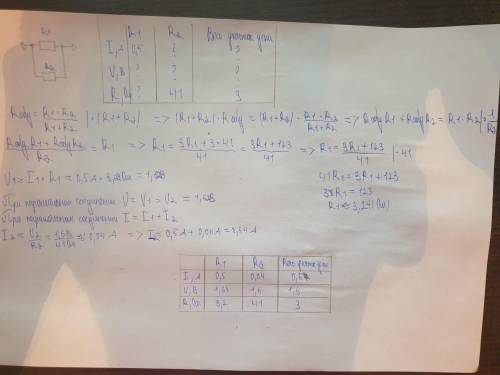 R1
R2
R1 R2 Весь участок цепи
I, A 0,5 ? ?
U, B ? ? ?
R, Ом ? 41 3
Rобщ = R1·R2/R1+R2 |·(R1+R2) => (R1+R2)·Rобщ = (R1+R2)·R1·R2/R1+R2 => RобщR1 + RобщR2 = R1·R2 |·1/R2
RобщR1 + RобщR2/R2 = R1 => R1 = 3R1+3·41/41 = 3R1+123/41 => R1 = 3R1+123/41 |·41
41R1 = 3R1+123
38R1 = 123
R1 ≈ 3,2 (Ом)
U1 = I1·R1 = 0,5A · 3,2Ом = 1,6B
При параллельном соединении U = U1 = U2 = 1,6B
При параллельном соединении I = I1 + I2
I2 = U2/R2 = 1,6B/41Ом ≈ 0,04 A => I = 0,5A + 0,04A = 0,54A
R1 R2 Весь участок цепи
I, A 0,5 0,04 0,54
U, B 1,6 1,6
R, Ом 3,2 41 3